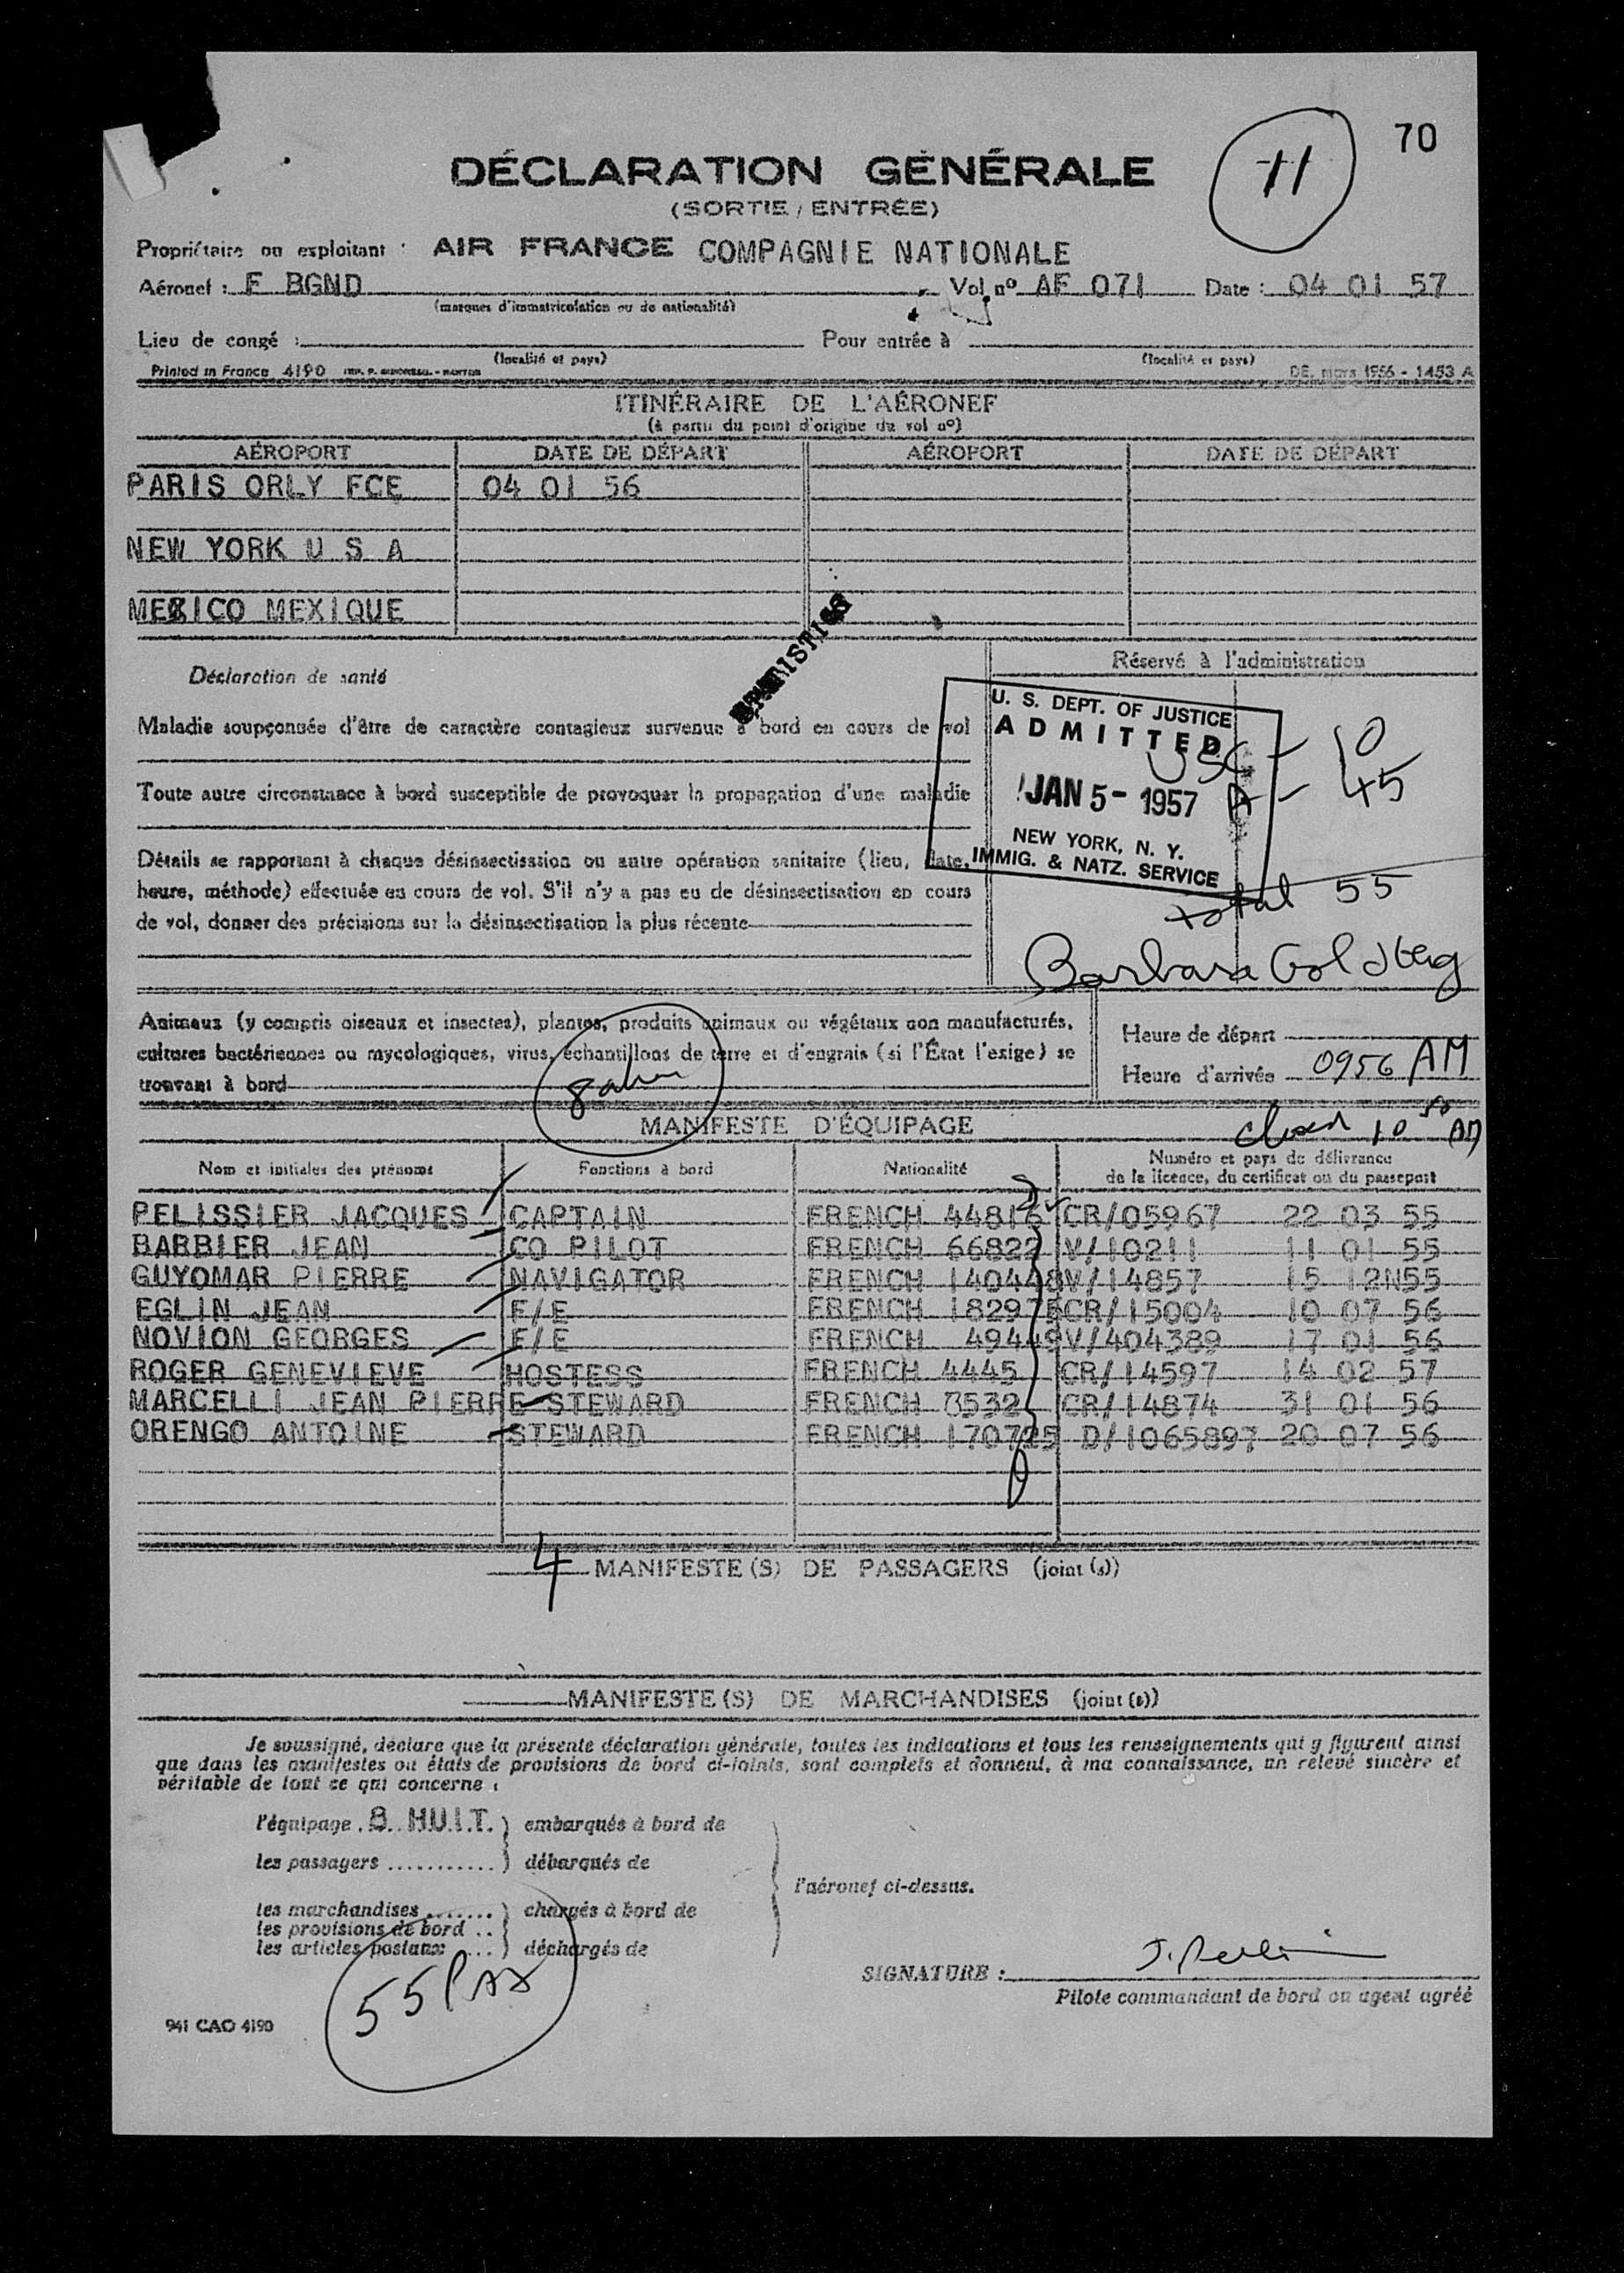 70
11
DÉCLARATION GÉNÉRALE
(SORTIE / ENTRÉE)
Propriétaire ou exploitant : AIR FRANCE COMPAGNIE NATIONALE
Aéronef : F BGND Vol nº AF 071 Date : 04 01 57
(marques d'immatriculation ou de nationalité)
Lieu de congé : Pour entrée à
(localité et pays) (localité et pays)
Printed in France 4190 DE, mars 1956 - 1453 A
ITINÉRAIRE DE L'AÉRONEF
(à partir du point d'origine du vol nº)
AÉROPORT DATE DE DÉPART AÉROPORT DATE DE DÉPART
PARIS ORLY FCE 04 01 56
NEW YORK U S A
MEXICO MEXIQUE
STATISTICS
Déclaration de santé
Réservé à l'administration
Maladie soupçonnée d'être de caractère contagieux survenue à bord en cours de vol
Toute autre circonstance à bord susceptible de provoquer la propagation d'une maladie
Détails se rapportant à chaque désinsectisation ou autre opération sanitaire (lieu, date,
heure, méthode) effectuée en cours de vol. S'il n'y a pas eu de désinsectisation en cours
de vol, donner des précisions sur la désinsectisation la plus récente
U. S. DEPT. OF JUSTICE
ADMITTED
JAN 5 - 1957
NEW YORK, N. Y.
IMMIG. & NATZ. SERVICE
USC - 10
A - 45
total 55
Barbara Goldberg
Animaux (y compris oiseaux et insectes), plantes, produits animaux ou végétaux non manufacturés,
cultures bactériennes ou mycologiques, virus, échantillons de terre et d'engrais (si l'État l'exige) se
trouvant à bord
Heure de départ
Heure d'arrivée 0956 AM
closed 10 50 AM
MANIFESTE D'ÉQUIPAGE
Nom et initiales des prénoms Fonctions à bord Nationalité Numéro et pays de délivrance
de la licence, du certificat ou du passeport
PELISSIER JACQUES CAPTAIN FRENCH 44816 CR/05967 22 03 55
BARBIER JEAN CO PILOT FRENCH 66822 V/10211 11 01 55
GUYOMAR PIERRE NAVIGATOR FRENCH 140448 V/14857 15 12N55
EGLIN JEAN F/E FRENCH 182975 CR/15004 10 07 56
NOVION GEORGES F/E FRENCH 49449 V/404389 17 01 56
ROGER GENEVIEVE HOSTESS FRENCH 4445 CR/14597 14 02 57
MARCELLI JEAN PIERRE STEWARD FRENCH 8532 CR/14874 31 01 56
ORENGO ANTOINE STEWARD FRENCH 170725 D/1065897 20 07 56
4 MANIFESTE(S) DE PASSAGERS (joint (s))
MANIFESTE(S) DE MARCHANDISES (joint (s))
Je soussigné, déclare que la présente déclaration générale, toutes les indications et tous les renseignements qui y figurent ainsi
que dans les manifestes ou états de provisions de bord ci-joints, sont complets et donnent, à ma connaissance, un relevé sincère et
véritable de tout ce qui concerne :
l'équipage . 8 . HUIT . ) embarqués à bord de
les passagers ........... ) débarqués de
l'aéronef ci-dessus.
les marchandises ....... ) chargés à bord de
les provisions de bord ..
les articles postaux ... ) déchargés de
55 Pax
SIGNATURE :
Pilote commandant de bord ou agent agréé
941 CAO 4190